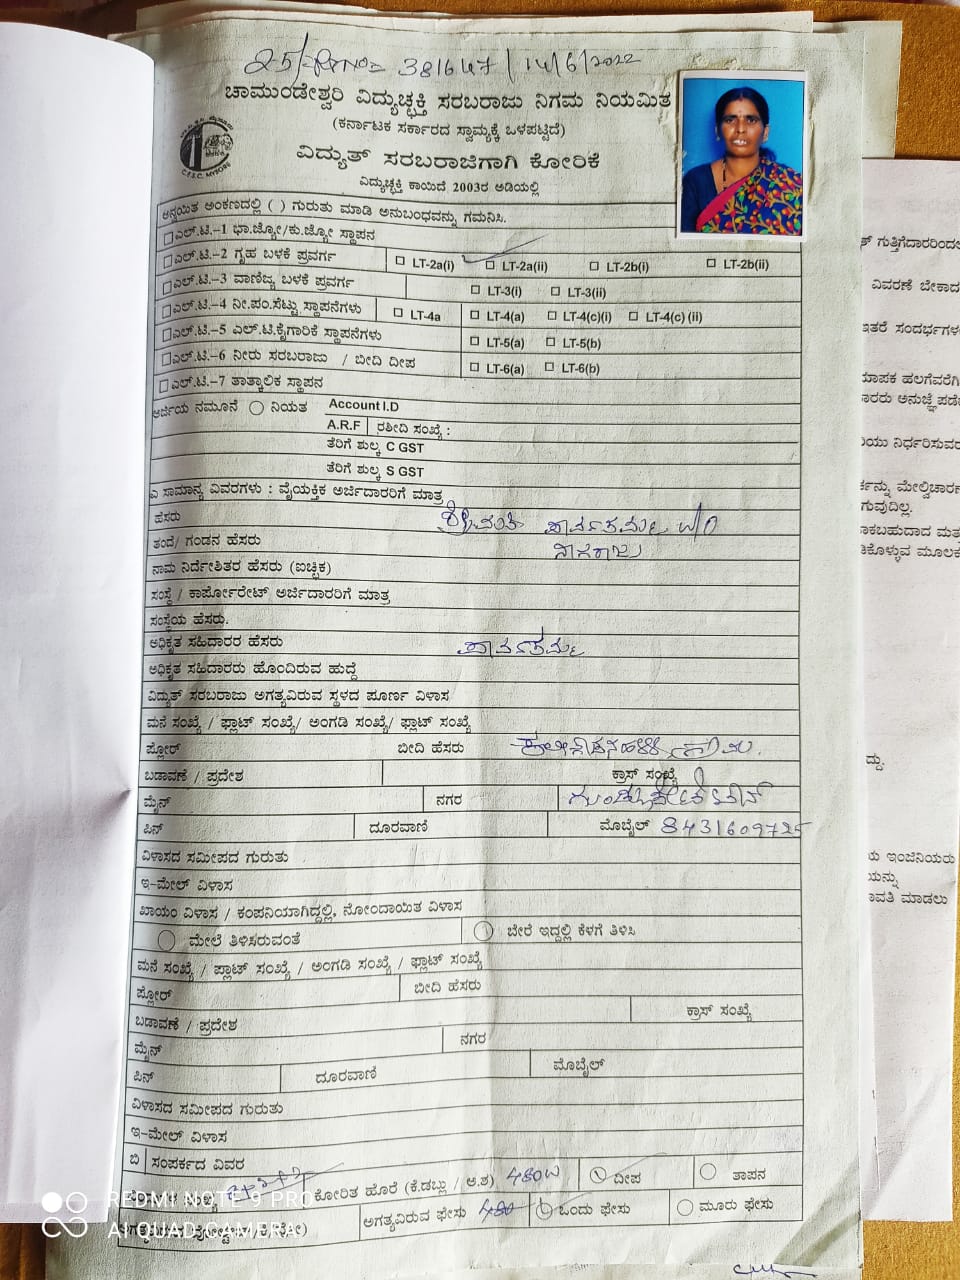 381647 / 14/6/2022
ಚಾಮುಂಡೇಶ್ವರಿ ವಿದ್ಯುಚ್ಛಕ್ತಿ ಸರಬರಾಜು ನಿಗಮ ನಿಯಮಿತ
(ಕರ್ನಾಟಕ ಸರ್ಕಾರದ ಸ್ವಾಮ್ಯಕ್ಕೆ ಒಳಪಟ್ಟಿದೆ)
ವಿದ್ಯುತ್ ಸರಬರಾಜಿಗಾಗಿ ಕೋರಿಕೆ
ವಿದ್ಯುಚ್ಛಕ್ತಿ ಕಾಯಿದೆ 2003ರ ಅಡಿಯಲ್ಲಿ
ಅನ್ವಯಿತ ಅಂಕಣದಲ್ಲಿ ( ) ಗುರುತು ಮಾಡಿ ಅನುಬಂಧವನ್ನು ಗಮನಿಸಿ.
ಎಲ್.ಟಿ.-1 ಭಾ.ಜ್ಯೋ/ಕು.ಜ್ಯೋ ಸ್ಥಾಪನ
ಎಲ್.ಟಿ.-2 ಗೃಹ ಬಳಕೆ ಪ್ರವರ್ಗ LT-2a(i) LT-2a(ii) LT-2b(i) LT-2b(ii)
ಎಲ್.ಟಿ.-3 ವಾಣಿಜ್ಯ ಬಳಕೆ ಪ್ರವರ್ಗ LT-3(i) LT-3(ii)
ಎಲ್.ಟಿ.-4 ನೀ.ಪಂ.ಸೆಟ್ಟು ಸ್ಥಾಪನೆಗಳು LT-4a LT-4(a) LT-4(c)(i) LT-4(c) (ii)
ಎಲ್.ಟಿ.-5 ಎಲ್.ಟಿ.ಕೈಗಾರಿಕೆ ಸ್ಥಾಪನೆಗಳು LT-5(a) LT-5(b)
ಎಲ್.ಟಿ.-6 ನೀರು ಸರಬರಾಜು / ಬೀದಿ ದೀಪ LT-6(a) LT-6(b)
ಎಲ್.ಟಿ.-7 ತಾತ್ಕಾಲಿಕ ಸ್ಥಾಪನ
ಅರ್ಜಿಯ ನಮೂನೆ ನಿಯತ Account I.D
A.R.F ರಶೀದಿ ಸಂಖ್ಯೆ :
ತೆರಿಗೆ ಶುಲ್ಕ C GST
ತೆರಿಗೆ ಶುಲ್ಕ S GST
ಎ ಸಾಮಾನ್ಯ ವಿವರಗಳು : ವೈಯಕ್ತಿಕ ಅರ್ಜಿದಾರರಿಗೆ ಮಾತ್ರ
ಹೆಸರು ಶ್ರೀಮತಿ ಪಾರ್ವತಮ್ಮ W/O
ತಂದೆ/ ಗಂಡನ ಹೆಸರು ನಾಗರಾಜು
ನಾಮ ನಿರ್ದೇಶಿತರ ಹೆಸರು (ಐಚ್ಛಿಕ)
ಸಂಸ್ಥೆ / ಕಾರ್ಪೋರೇಟ್ ಅರ್ಜಿದಾರರಿಗೆ ಮಾತ್ರ
ಸಂಸ್ಥೆಯ ಹೆಸರು.
ಅಧಿಕೃತ ಸಹಿದಾರರ ಹೆಸರು ಪಾರ್ವತಮ್ಮ
ಅಧಿಕೃತ ಸಹಿದಾರರು ಹೊಂದಿರುವ ಹುದ್ದೆ
ವಿದ್ಯುತ್ ಸರಬರಾಜು ಅಗತ್ಯವಿರುವ ಸ್ಥಳದ ಪೂರ್ಣ ವಿಳಾಸ
ಮನೆ ಸಂಖ್ಯೆ / ಫ್ಲಾಟ್ ಸಂಖ್ಯೆ/ ಅಂಗಡಿ ಸಂಖ್ಯೆ/ ಫ್ಲಾಟ್ ಸಂಖ್ಯೆ
ಪ್ಲೋರ್ ಬೀದಿ ಹೆಸರು
ಬಡಾವಣೆ / ಪ್ರದೇಶ ಕ್ರಾಸ್ ಸಂಖ್ಯೆ
ಮೈನ್ ನಗರ
ಪಿನ್ ದೂರವಾಣಿ ಮೊಬೈಲ್ 8431609725
ವಿಳಾಸದ ಸಮೀಪದ ಗುರುತು
ಇ-ಮೇಲ್ ವಿಳಾಸ
ಖಾಯಂ ವಿಳಾಸ / ಕಂಪನಿಯಾಗಿದ್ದಲ್ಲಿ, ನೋಂದಾಯಿತ ವಿಳಾಸ
ಮೇಲೆ ತಿಳಿಸಿರುವಂತೆ ಬೇರೆ ಇದ್ದಲ್ಲಿ ಕೆಳಗೆ ತಿಳಿಸಿ
ಮನೆ ಸಂಖ್ಯೆ / ಪ್ಲಾಟ್ ಸಂಖ್ಯೆ / ಅಂಗಡಿ ಸಂಖ್ಯೆ / ಫ್ಲಾಟ್ ಸಂಖ್ಯೆ
ಪ್ಲೋರ್ ಬೀದಿ ಹೆಸರು
ಬಡಾವಣೆ / ಪ್ರದೇಶ ಕ್ರಾಸ್ ಸಂಖ್ಯೆ
ಮೈನ್ ನಗರ
ಪಿನ್ ದೂರವಾಣಿ ಮೊಬೈಲ್
ವಿಳಾಸದ ಸಮೀಪದ ಗುರುತು
ಇ-ಮೇಲ್ ವಿಳಾಸ
ಬಿ ಸಂಪರ್ಕದ ವಿವರ
ಕೋರಿತ ಹೊರೆ (ಕೆ.ಡಬ್ಲು / ಅ.ಶ) 480W ದೀಪ ತಾಪನ
ಅಗತ್ಯವಿರುವ ಫೇಸು 480 ಒಂದು ಫೇಸು ಮೂರು ಫೇಸು
REDMI NOTE 9 PRO
AI QUAD CAMERA